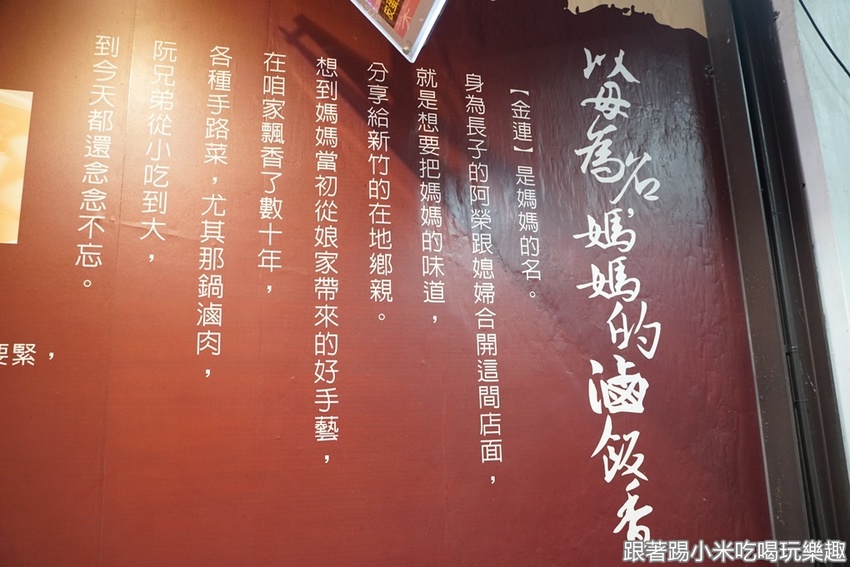 以母為名，媽媽的滷飯香
【金連】是媽媽的名。
身為長子的阿榮跟媳婦合開這間店面，
就是想要把媽媽的味道，
分享給新竹的在地鄉親。
想到媽媽當初從娘家帶來的好手藝，
在咱家飄香了數十年，
各種手路菜，尤其那鍋滷肉，
阮兄弟從小吃到大，
到今天都還念念不忘。
要緊，
跟著踢小米吃喝玩樂趣